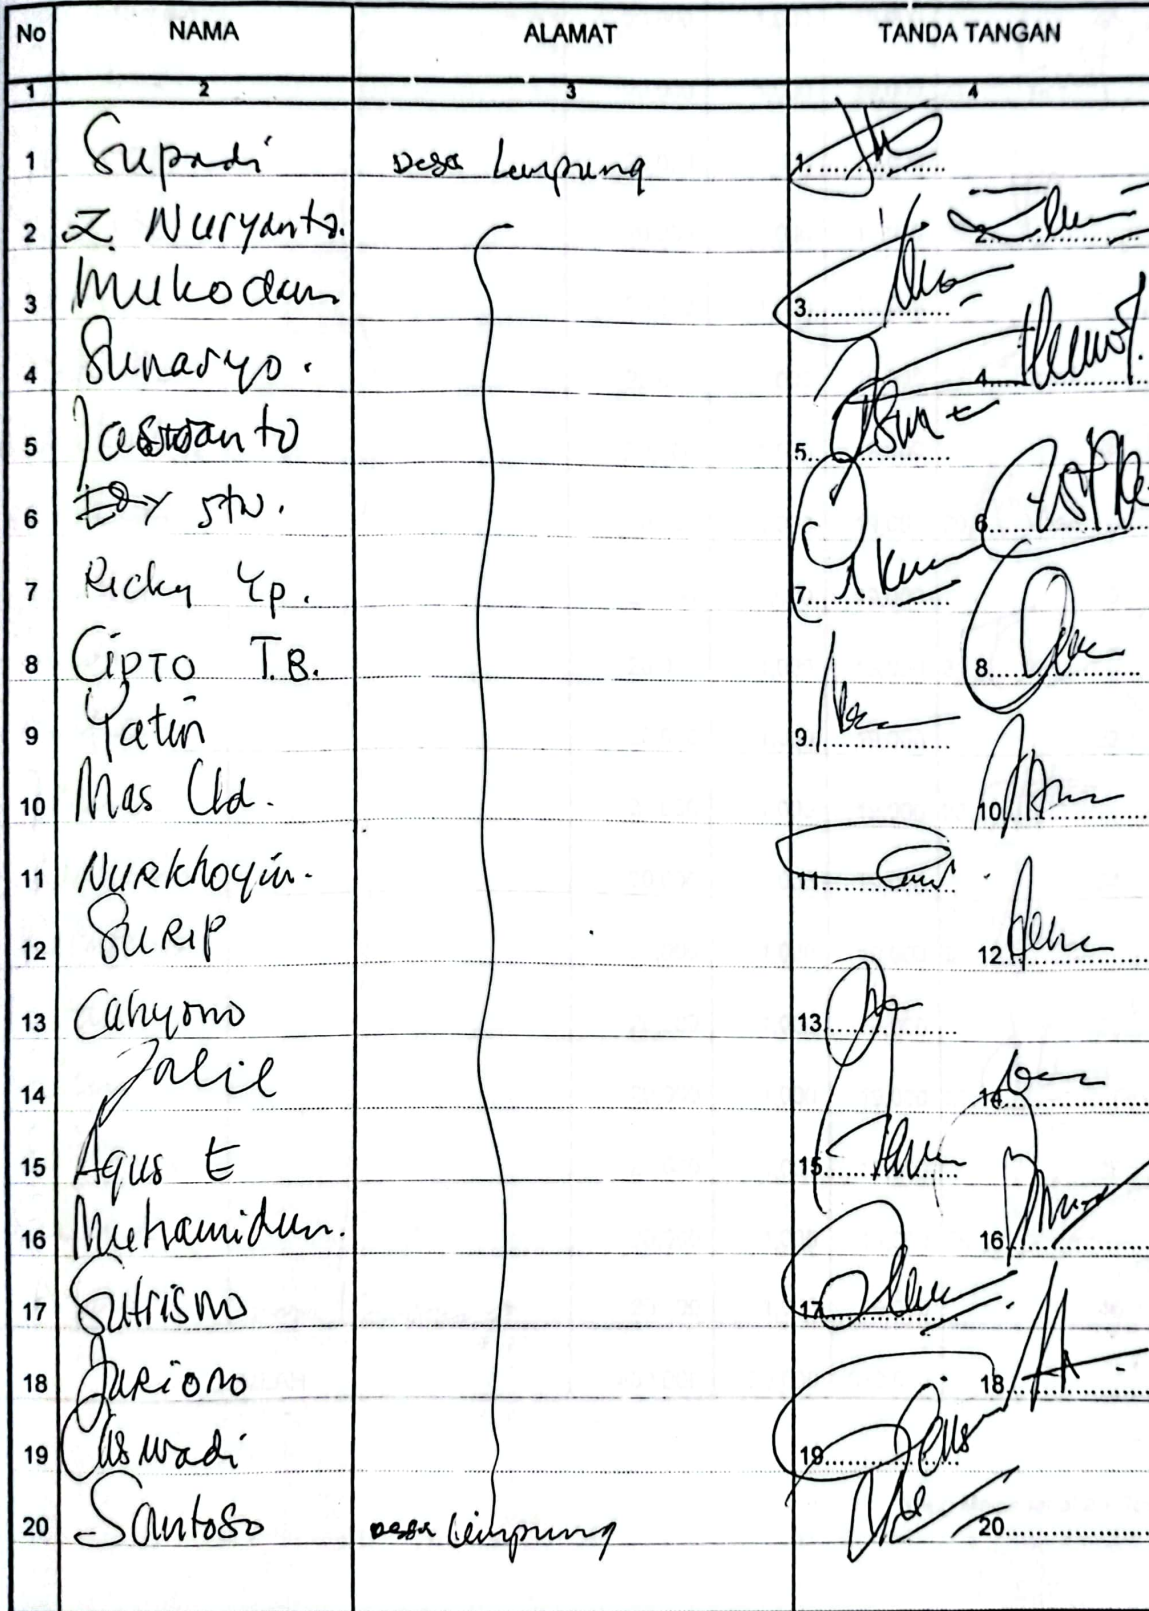 No NAMA ALAMAT TANDA TANGAN
1 2 3 4
1 Supadi Desa Limpung 1.
2 Z. Nuryanto. 2.
3 Mukodam 3.
4 Sunaryo. 4.
5 5.
6 Edy stw. 6.
7 Ricky Yp. 7.
8 Cipto T.B. 8.
9 Yatin 9.
10 Mas Ud. 10.
11 Nurkhoyin. 11.
12 Surip 12.
13 Cahyono 13.
14 Jalil 14.
15 Agus E 15.
16 Muhamidun. 16.
17 Sutrisno 17.
18 Juriono 18.
19 Ciswadi 19.
20 Santoso Desa Limpung 20.